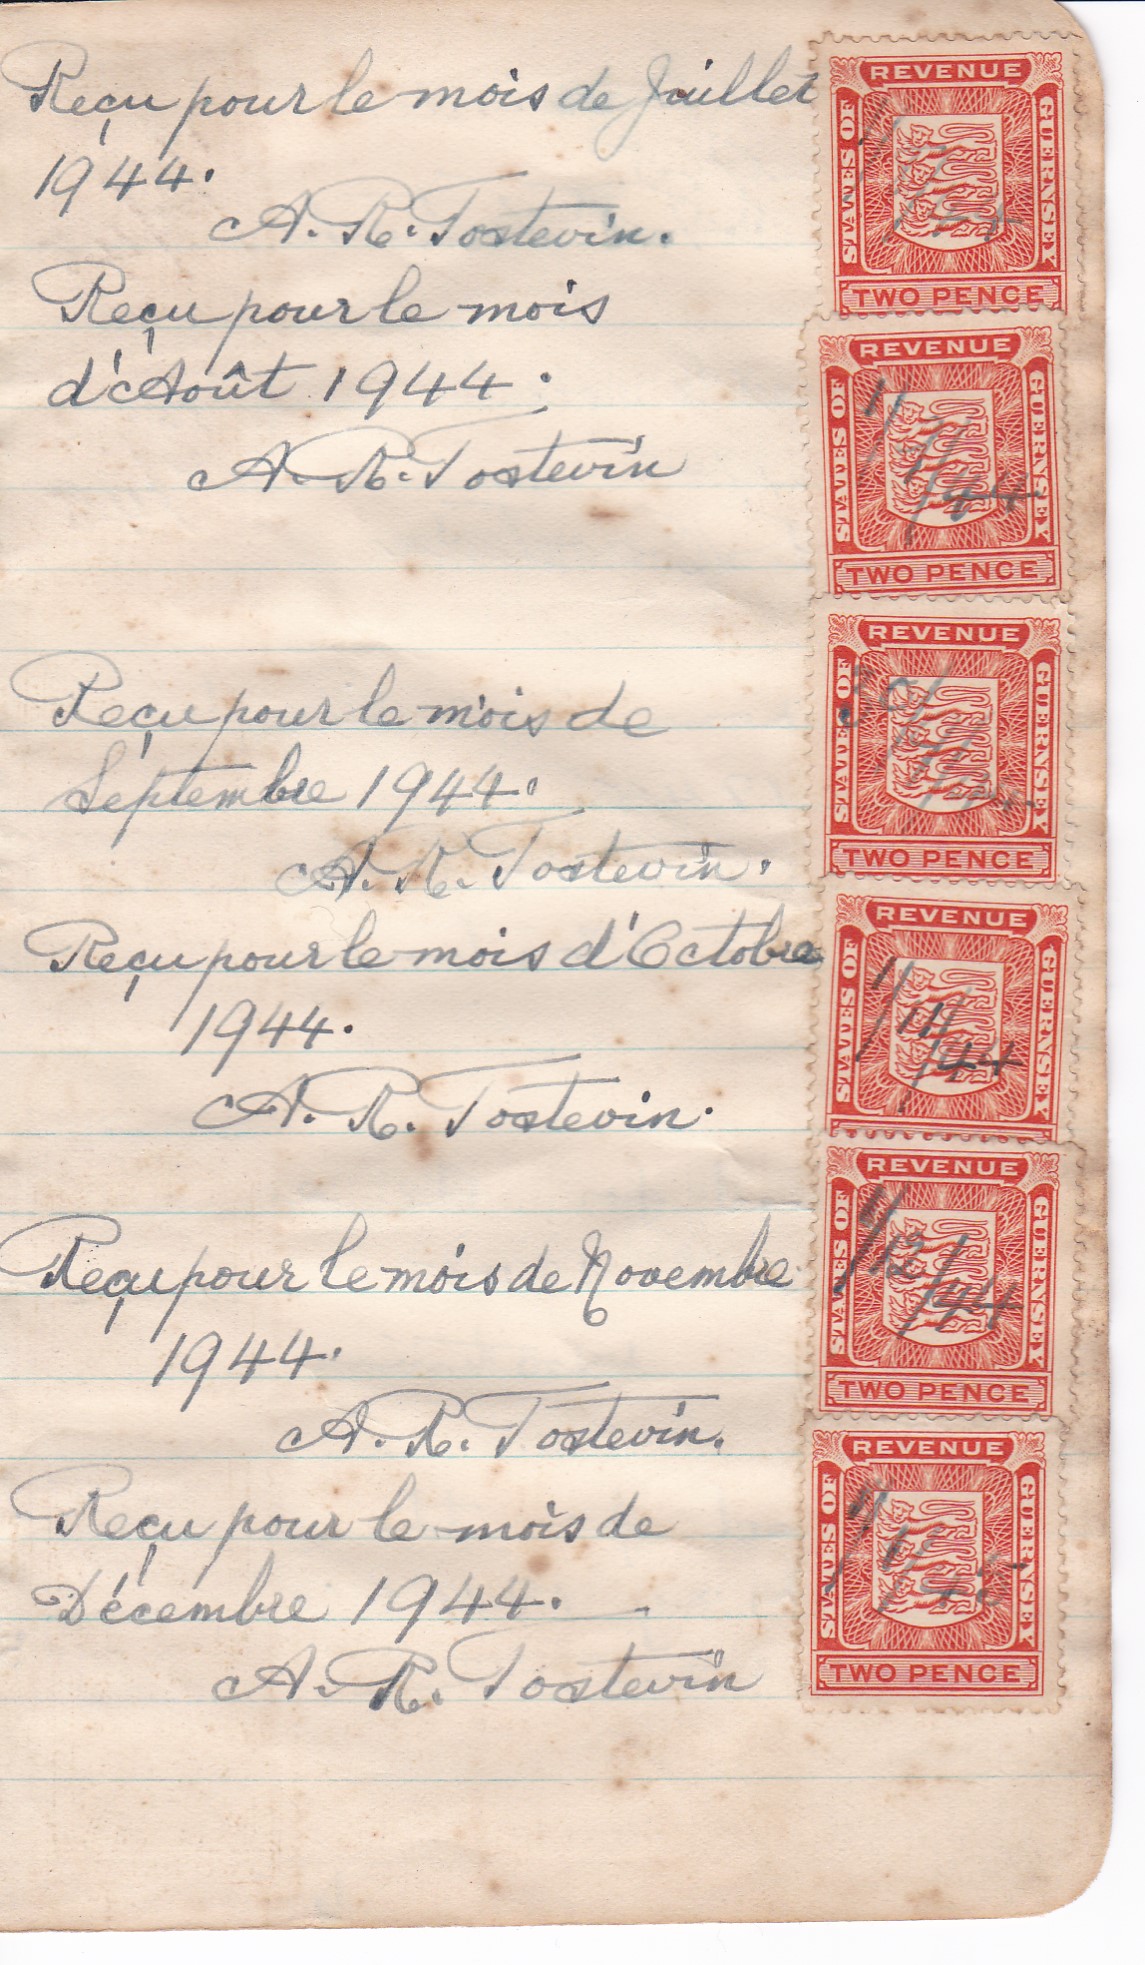 Reçu pour le mois de Juillet
1944.
A. R. Tostevin.
REVENUE
STATES OF
GUERNSEY
TWO PENCE
Reçu pour le mois
d'Août 1944.
A. R. Tostevin
REVENUE
STATES OF
GUERNSEY
1/9/44
TWO PENCE
Reçu pour le mois de
Septembre 1944.
A. R. Tostevin.
REVENUE
STATES OF
GUERNSEY
30/9/44
TWO PENCE
Reçu pour le mois d'Octobre
1944.
A. R. Tostevin.
REVENUE
STATES OF
GUERNSEY
1/11/44
Reçu pour le mois de Novembre
1944.
A. R. Tostevin.
REVENUE
STATES OF
GUERNSEY
1/12/44
TWO PENCE
Reçu pour le mois de
Décembre 1944.
A. R. Tostevin
REVENUE
STATES OF
GUERNSEY
1/1/45
TWO PENCE